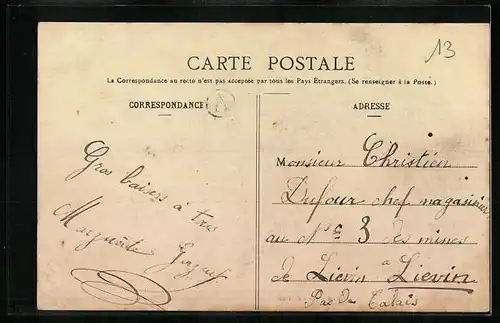 13
CARTE POSTALE
La Correspondance au recto n'est pas acceptée par tous les Pays Étrangers. (Se renseigner à la Poste.)
CORRESPONDANCE
Gros baisers à tous
Marguerite
ADRESSE
Monsieur Christien
Dufour chef magasinier
au N° 3 des mines
de Lievin à Lievin
Pas De Calais